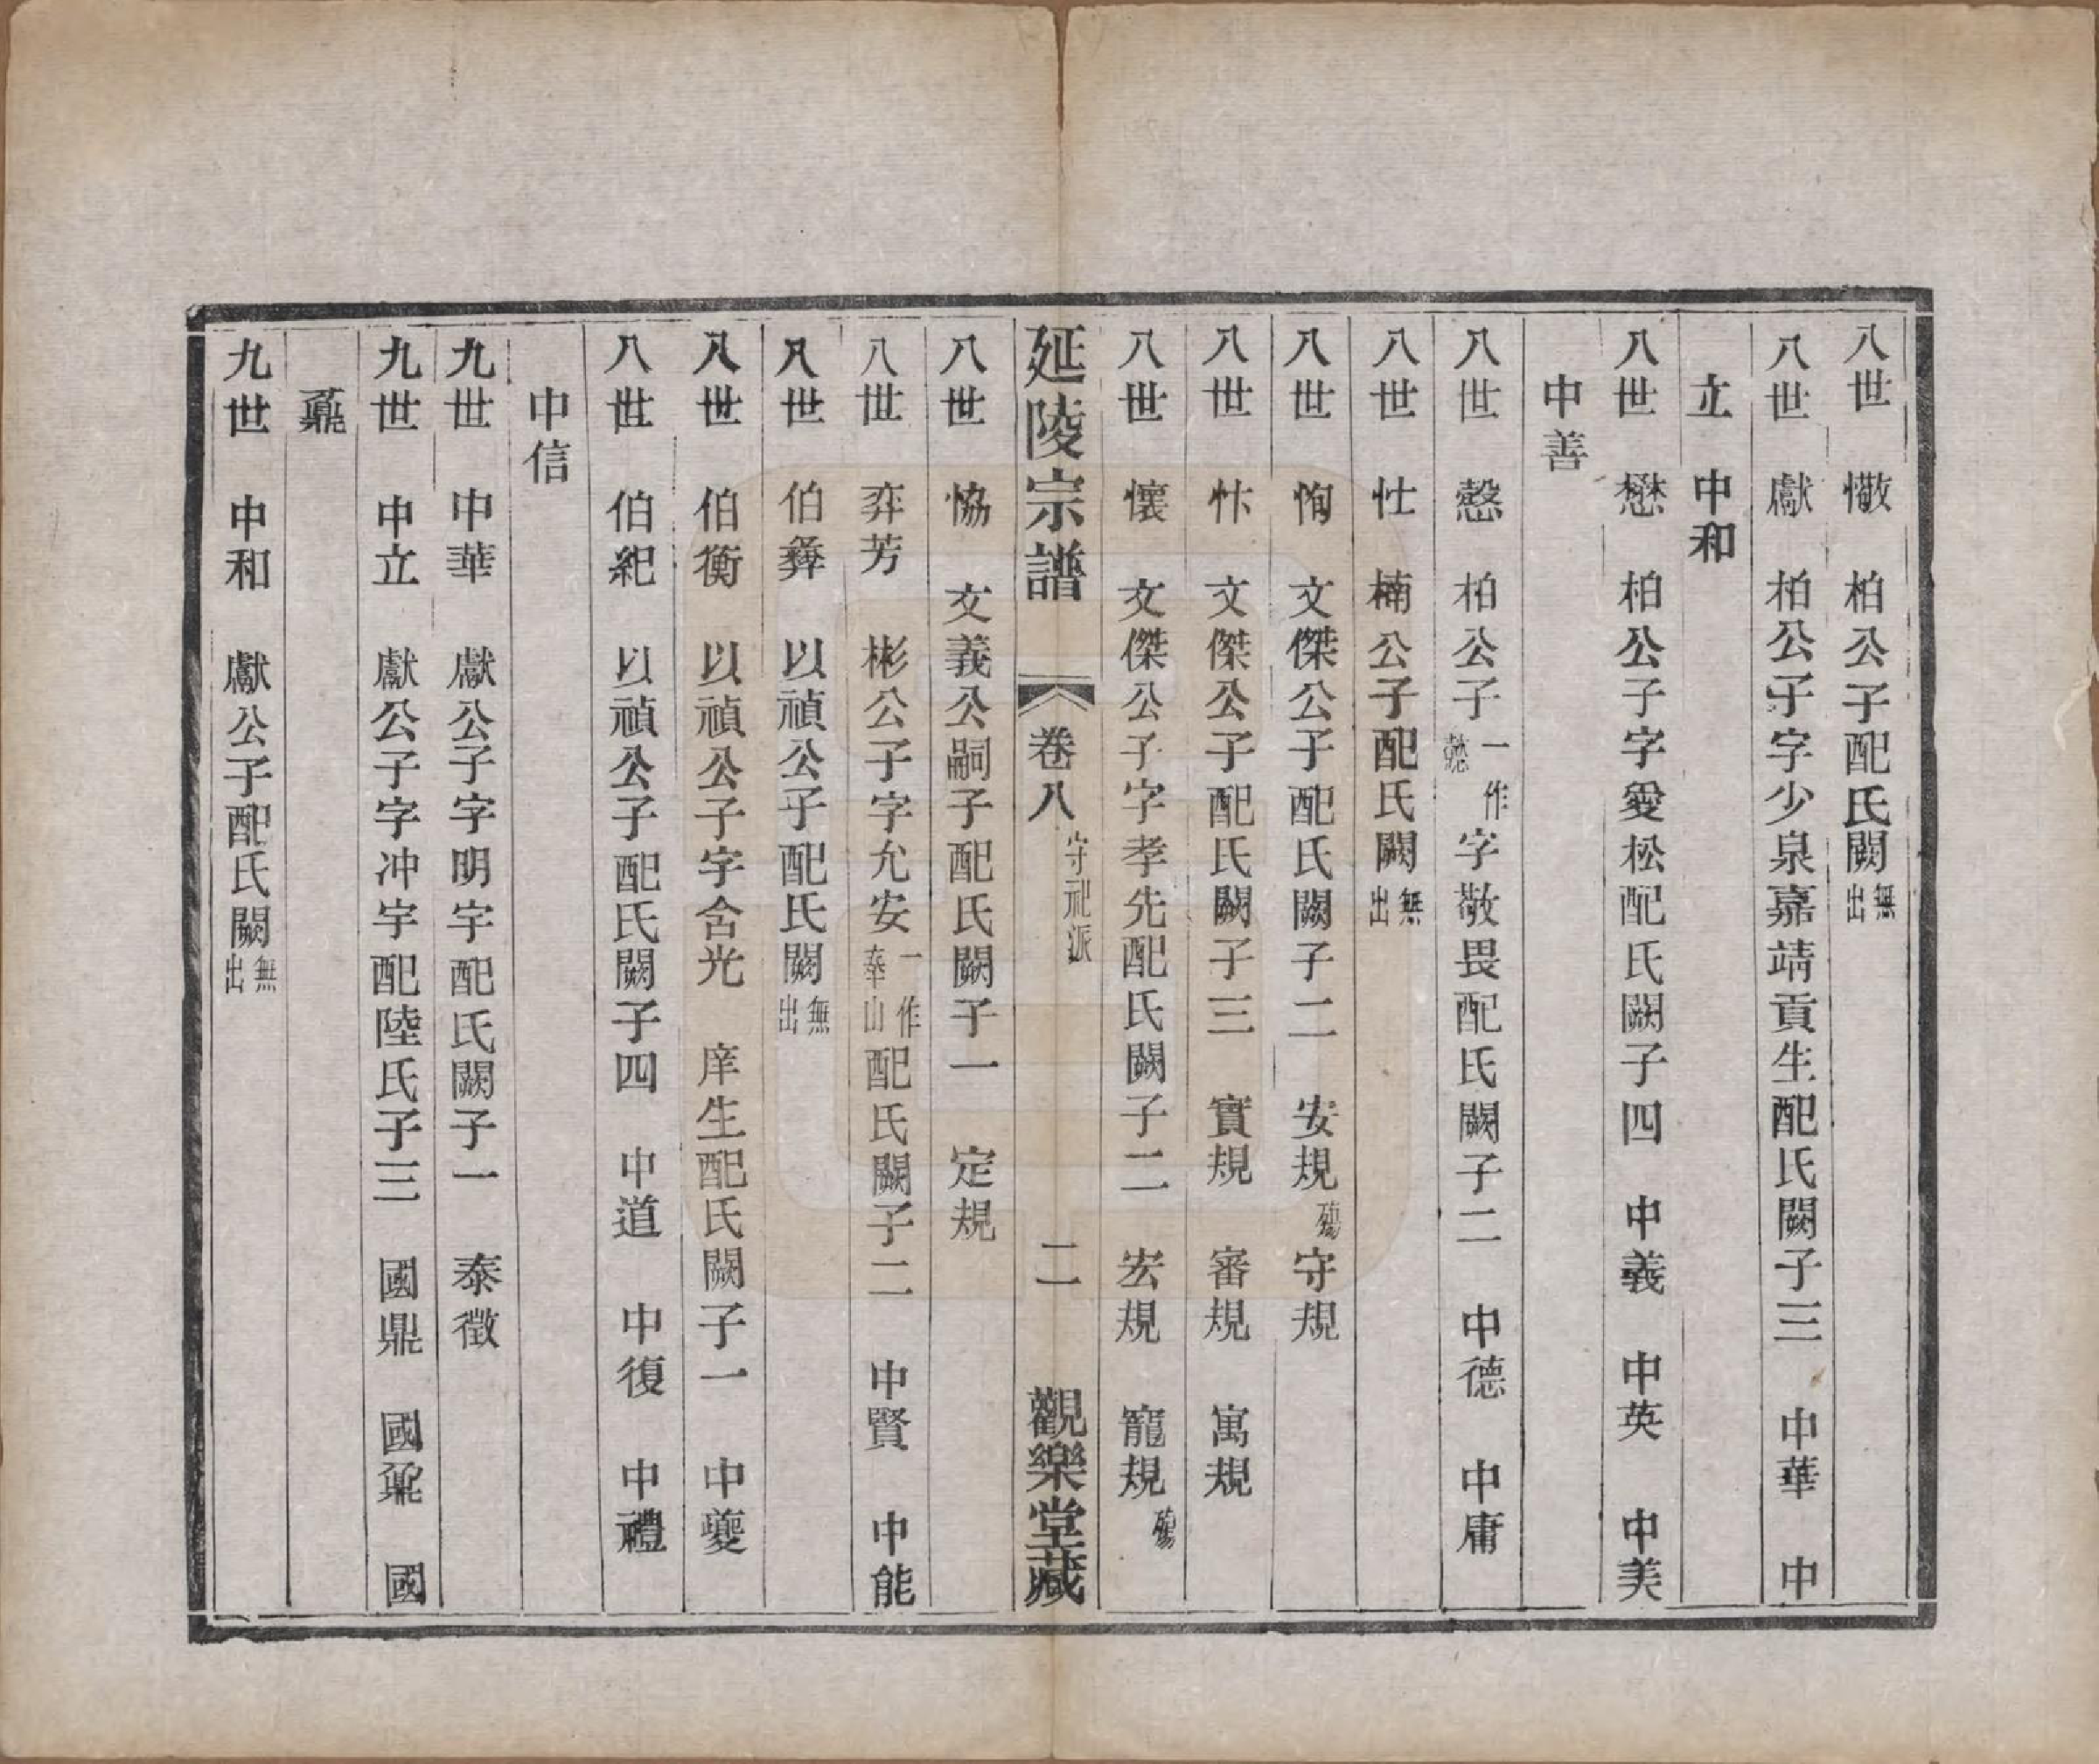 八世 憿 柏公子配氏闕無出
八世 獻 柏公子字少泉嘉靖貢生配氏闕子三 中華 中
立 中和
八世 懋 柏公子字愛松配氏闕子四 中義 中英 中美
中善
八世 慤 柏公子一作懃字敬畏配氏闕子二 中德 中庸
八世 忕 楠公子配氏闕無出
八世 恂 文傑公子配氏闕子二 安規殤 守規
八世 忭 文傑公子配氏闕子三 實規 審規 寓規
八世 懷 文傑公子字孝先配氏闕子二 宏規 寵規殤
延陵宗譜 卷八 守祀派 二 觀樂堂藏
八世 恊 文義公嗣子配氏闕子一 定規
八世 弈芳 彬公子字允安一作奉山配氏闕子二 中賢 中能
八世 伯彝 以禎公子配氏闕無出
八世 伯衡 以禎公子字含光 庠生配氏闕子一 中夔
八世 伯紀 以禎公子配氏闕子四 中道 中復 中禮
中信
九世 中華 獻公子字明宇配氏闕子一 泰徵
九世 中立 獻公子字冲宇配陸氏子三 國鼎 國鼐 國
鼒
九世 中和 獻公子配氏闕無出